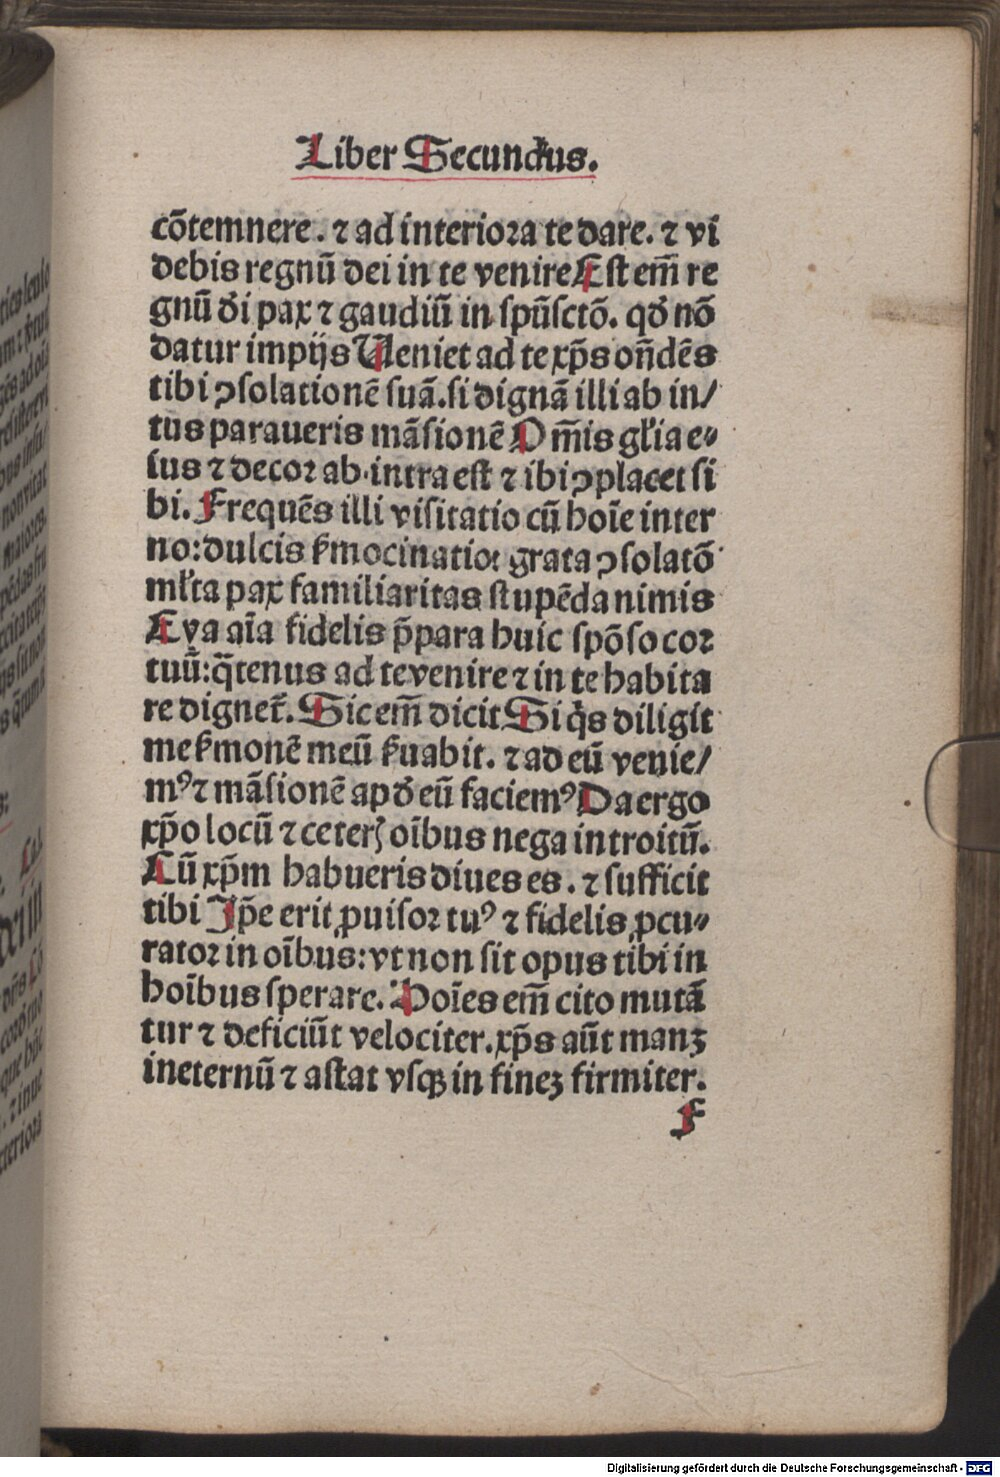 Liber Secundus.
cõtemnere. ⁊ ad interiora te dare. ⁊ vi
debis regnũ dei in te venire Est em̃ re
gnũ dĩ pax ⁊ gaudiũ in spũsctõ. qđ nõ
datur impijs Veniet ad te xp̃s oñdẽs
tibi ꝯsolationẽ suã. si dignã illi ab in/
tus paraueris mãsionẽ Om̃is gl̃ia e⸗
ius ⁊ decor ab intra est ⁊ ibi ꝯplacet si
bi. Frequẽs illi visitatio cũ hoĩe inter
no: dulcis s̃mocinatio: grata ꝯsolatõ
ml̃ta pax familiaritas stupẽda nimis
Eya aĩa fidelis p̃para huic spõso cor
tuũ: q̃tenus ad te venire ⁊ in te habita
re dignet̃. Sic em̃ dicit Si q̃s diligit
me s̃monẽ meũ s̃uabit. ⁊ ad eũ venie/
mꝰ ⁊ mãsionẽ apđ eũ faciemꝰ Da ergo
xp̃o locũ ⁊ ceterꝭ oĩbus nega introitũ.
Cũ xp̃m habueris diues es. ⁊ sufficit
tibi Ip̃e erit ꝓuisor tuꝰ ⁊ fidelis ꝓcu⸗
rator in oĩbus: vt non sit opus tibi in
hoĩbus sperare. Hoĩes em̃ cito mutã
tur ⁊ deficiũt velociter. xp̃s aũt manꝫ
ineternũ ⁊ astat vsqꝫ in fineꝫ firmiter.
F
Digitalisierung gefördert durch die Deutsche Forschungsgemeinschaft - DFG